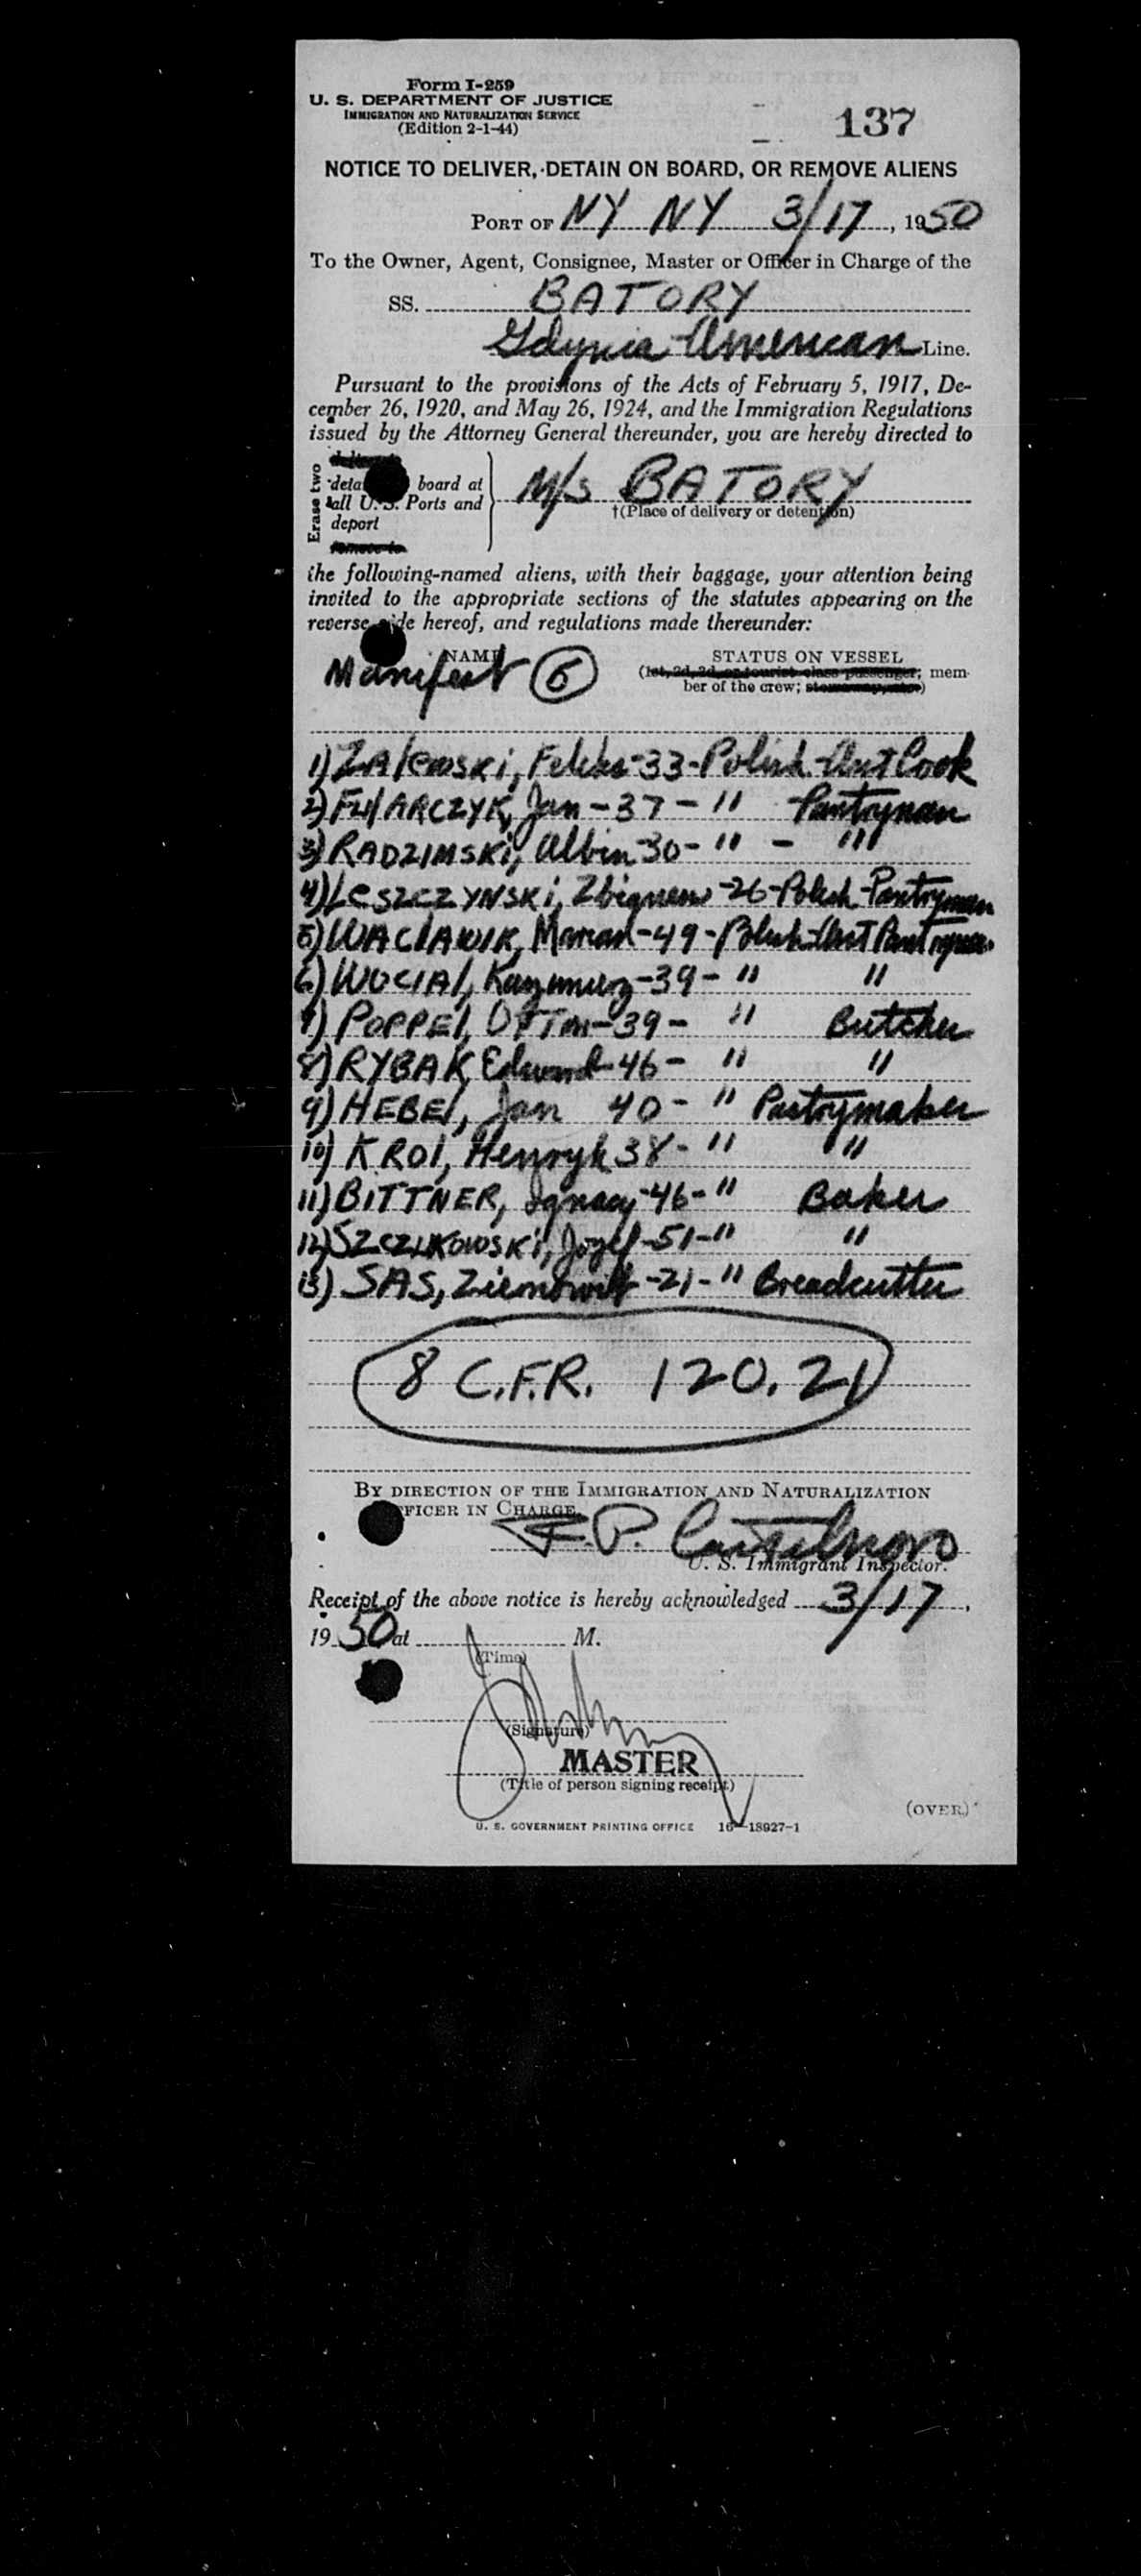 Form I-259
U. S. DEPARTMENT OF JUSTICE
IMMIGRATION AND NATURALIZATION SERVICE
(Edition 2-1-44)
137
NOTICE TO DELIVER, DETAIN ON BOARD, OR REMOVE ALIENS
PORT OF NY NY 3/17, 1950
To the Owner, Agent, Consignee, Master or Officer in Charge of the
SS. BATORY
Gdynia American Line.
Pursuant to the provisions of the Acts of February 5, 1917, De-
cember 26, 1920, and May 26, 1924, and the Immigration Regulations
issued by the Attorney General thereunder, you are hereby directed to
Erase two
deta board at
all U. S. Ports and
deport
remove to
M/S BATORY
†(Place of delivery or detention)
the following-named aliens, with their baggage, your attention being
invited to the appropriate sections of the statutes appearing on the
reverse side hereof, and regulations made thereunder:
NAME
Manifest 5
STATUS ON VESSEL
(1st, 2d, 3d, or tourist class passenger; mem-
ber of the crew; stowaway, etc.)
1) ZALEWSKI, Feliks-33-Polish-Asst Cook
2) Jan-37-" Pantryman
3) RADZIMSKi, Albin-30-" - "
4) LESZCZYNSKi, Zbigniew-26-Polish-Pantryman
5) WACLAWIK, Marian-49-Polish-Asst Pantryman
6) WOCIAL, Kazimierz-39-" "
7) POPPEL, -39-" Butcher
8) RYBAK, Edward-46-" "
9) HEBEL, Jan 40-" Pastrymaker
10) KROL, Henryk 38-" "
11) BITTNER, Ignacy-46-" Baker
12) Jozef-51-" "
13) SAS, Ziemowit-21-" Breadcutter
8 C.F.R. 120.21
BY DIRECTION OF THE IMMIGRATION AND NATURALIZATION
OFFICER IN CHARGE
U. S. Immigrant Inspector.
Receipt of the above notice is hereby acknowledged 3/17,
1950 at M.
(Time)
(Signature)
MASTER
(Title of person signing receipt)
(OVER)
U. S. GOVERNMENT PRINTING OFFICE 16—18927-1